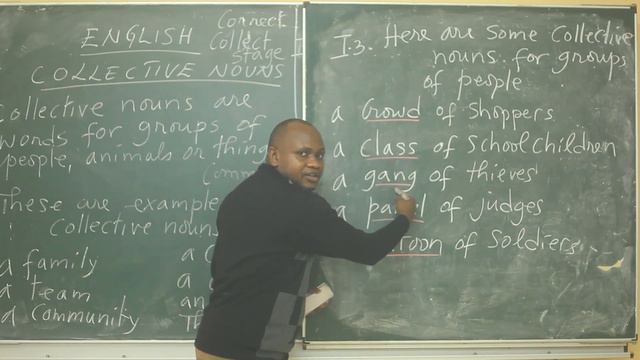 ENGLISH
Correct
Collect
stage
COLLECTIVE NOUNS
Collective nouns are
words for groups of
people, animals or thing
These are example
Collective noun
a family
a team
a community
a
a
an
I.3. Here are some collective
nouns for groups
of people
a crowd of shoppers
a class of schoolchildren
a gang of thieves
a pa l of judges
toon of soldiers